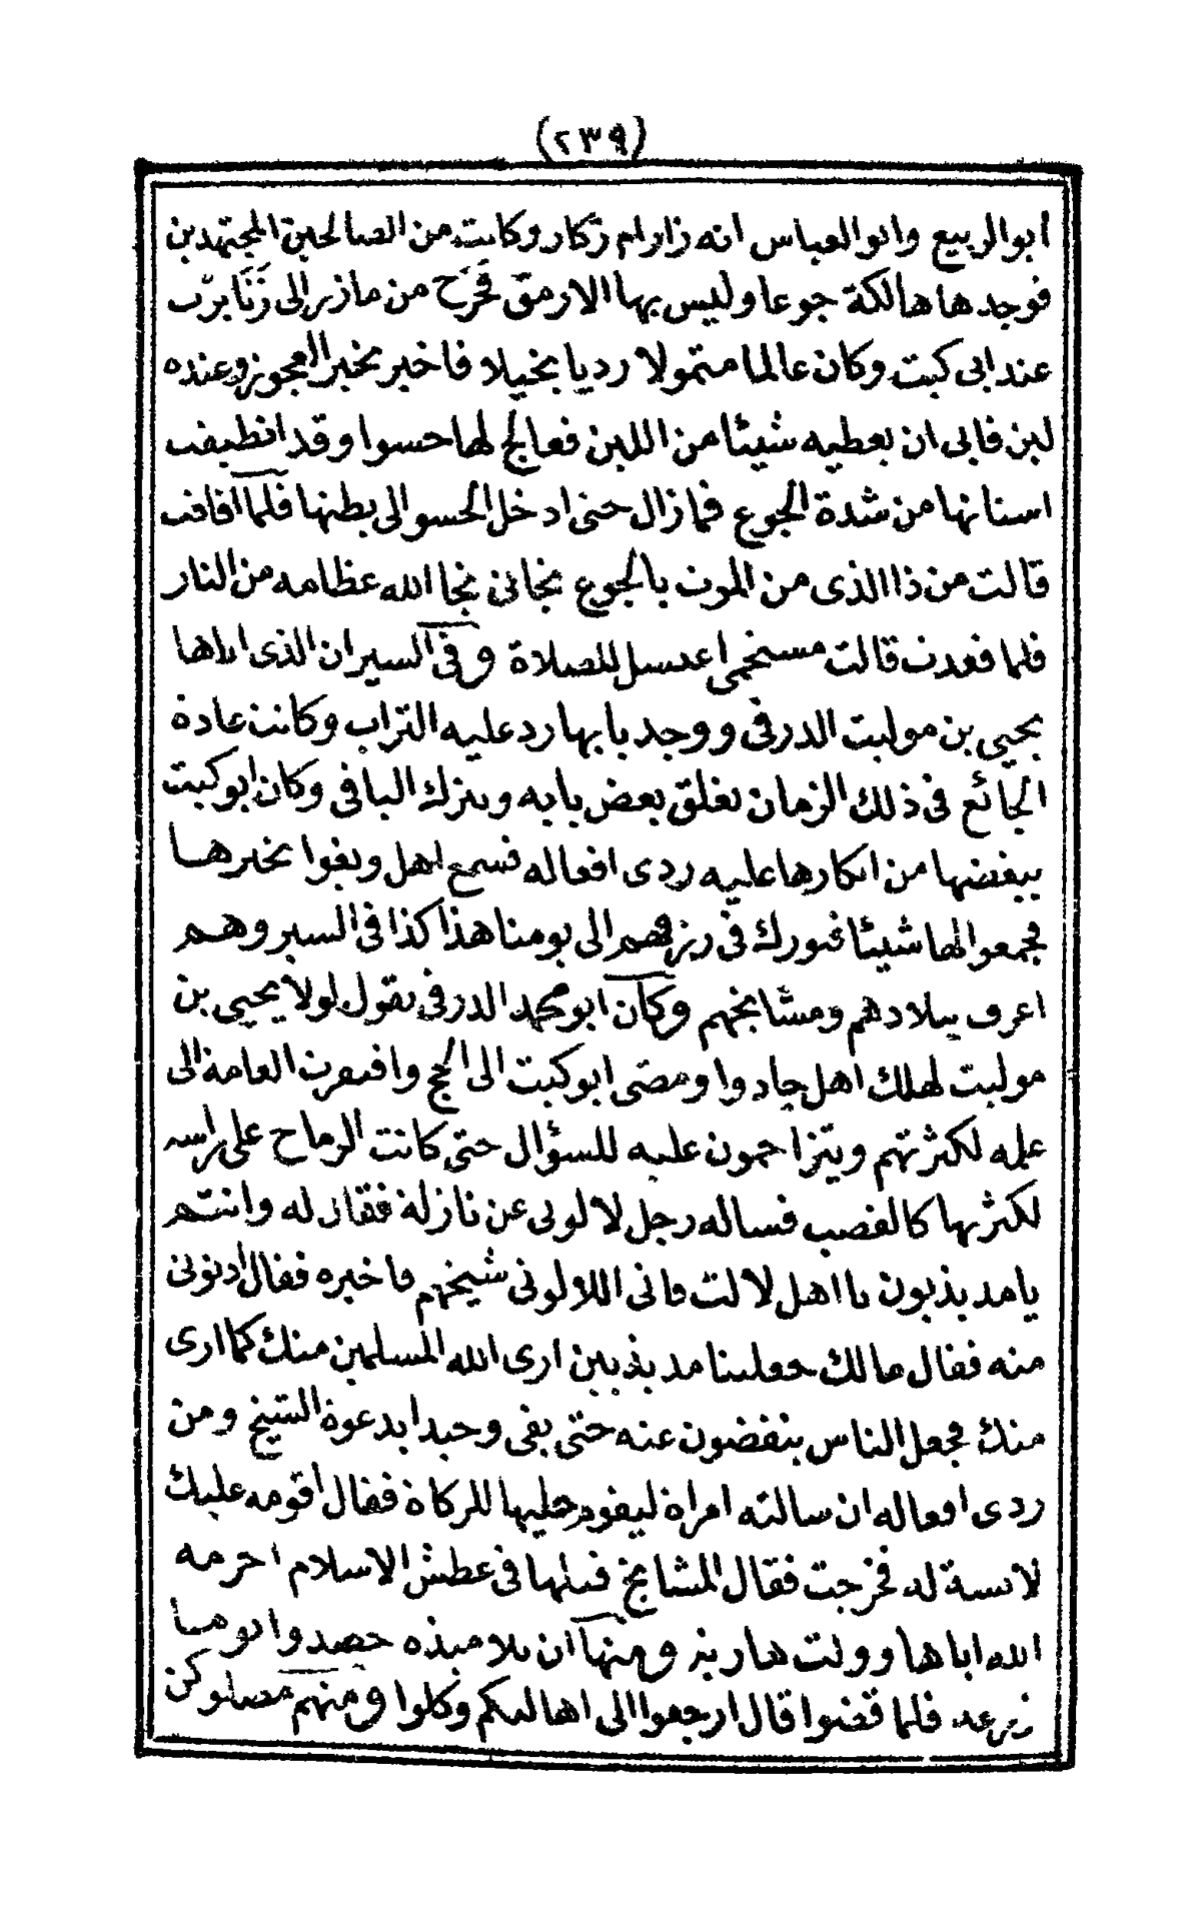 (٢٣٩)
أبو الربيع وابو العباس انه زار ام زكار وكانت من الصالحين المجتهدين
فوجدها هالكة جوعا وليس بها الا رمق فخرج من مازر الى
عند ابى كبت وكان عالما متمولا رديا بخيلا فاخبر بخبر العجوز وعنده
لبن فابى ان يعطيه شيئا من اللبن فعالج لها حسوا وقد انطبقت
اسنانها من شدة الجوع فمازال حتى ادخل الحسو الى بطنها فلما افاقت
قالت من ذا الذى من الموت بالجوع نجانى نجا الله عظامه من النار
فلما قعدت قالت للصلاة وفى السير ان الذى اتاها
يحيى بن موليت الدرفى ووجد بابها رد عليه التراب وكانت عادة
الجائع فى ذلك الزمان يغلق بعض بابه ويترك الباقى وكان ابو كبت
يبغضها من انكارها عليه ردى افعاله فسمع اهل ويغوا بخبرها
فجمعوا لها شيئا فبورك فى رزقهم الى يومنا هذا كذا فى السير وهم
اعرف ببلادهم ومشايخهم وكان ابو محمد الدرفى يقول لولا يحيى بن
موليت لهلك اهل جادوا ومضى ابو كبت الى الحج وافتقرت العامة الى
علمه لكثرتهم ويتزاحمون عليه للسؤال حتى كانت الرماح على راسه
لكثرتها كالقصب فساله رجل لالوتى عن نازلة فقال له وانتم
يا مذبذبون يا اهل لالت فاتى اللالوتى شيخهم فاخبره فقال ادنونى
منه فقال مالك جعلتنا مذبذبين ارى الله المسلمين منك كما ارى
منك فجعل الناس ينفضون عنه حتى بقى وحيدا بدعوة الشيخ ومن
ردى افعاله ان سالته امراة ليقوم حليها للزكاة فقال اقومه عليك
له فخرجت فقال المشايخ قتلها فى عطش الاسلام احرمه
الله اباها وولت هاربة ومنها ان تلاميذه حصدوا يوما
زرعه فلما قضوا قال ارجعوا الى اهاليكم وكلوا ومنهم مصلوكن